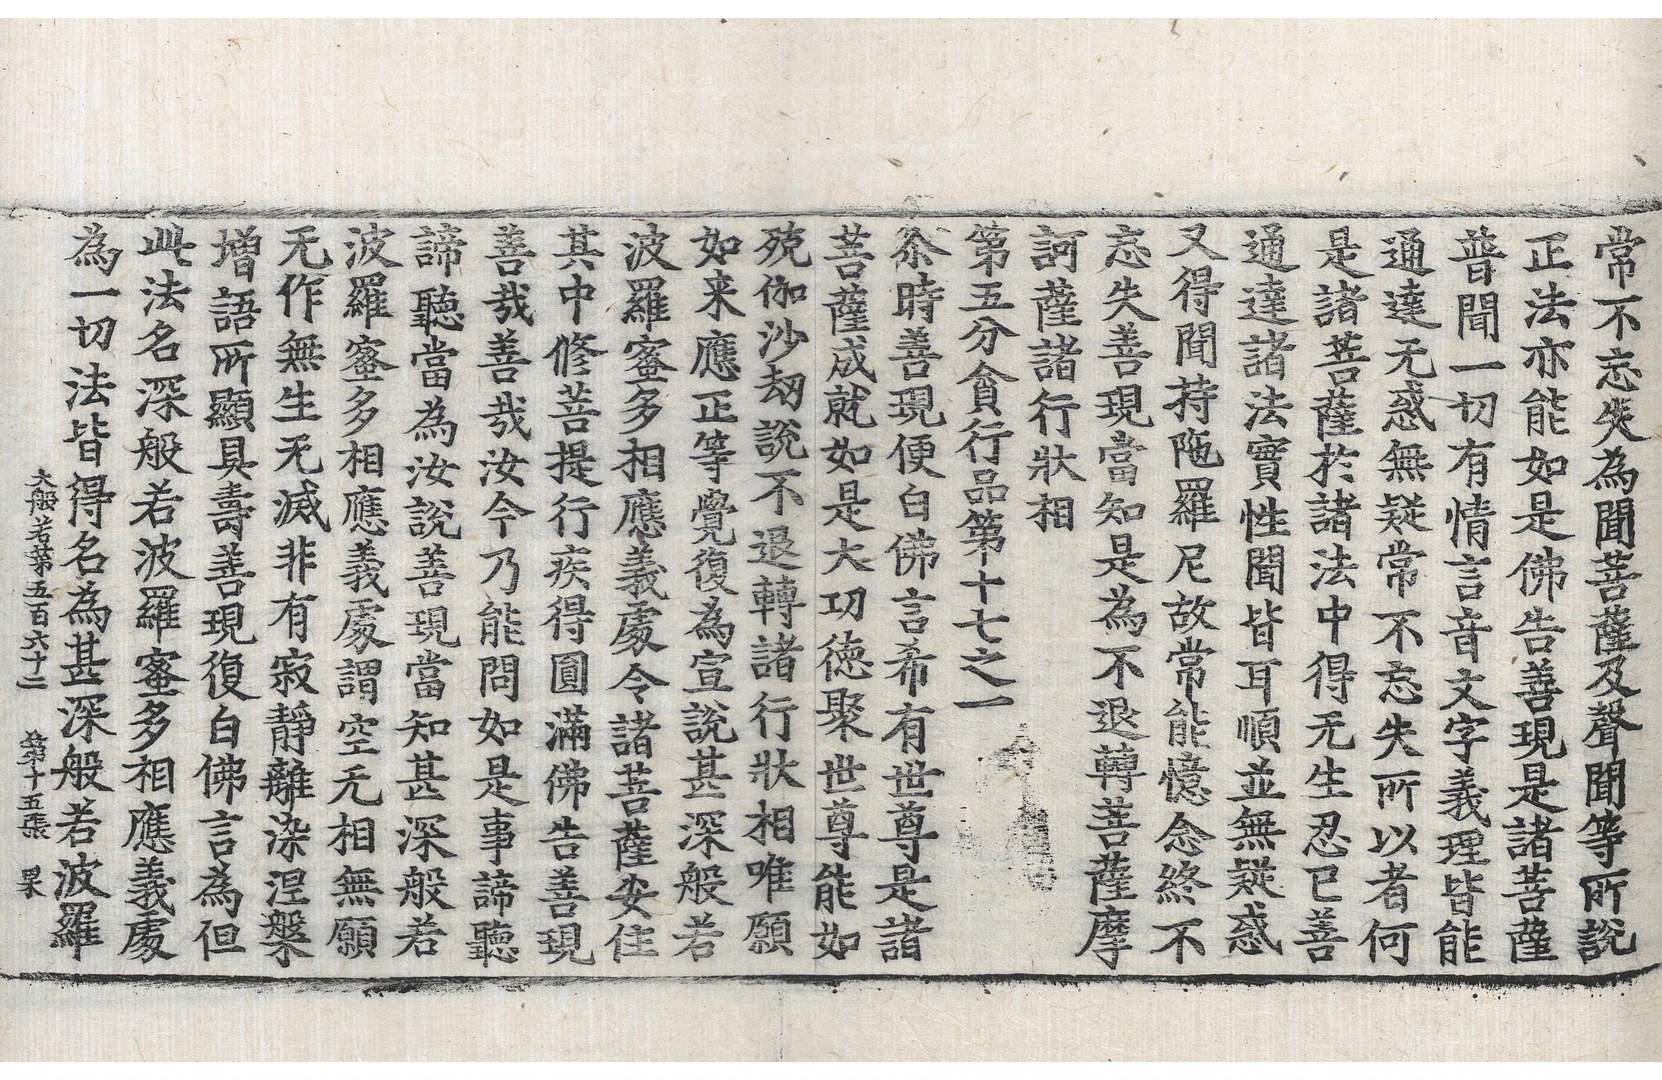 常不忘失為聞菩薩及聲聞等所說
正法亦能如是佛告善現是諸菩薩
普聞一切有情言音文字義理皆能
通達无惑無疑常不忘失所以者何
是諸菩薩於諸法中得无生忍已善
通達諸法實性聞皆耳順並無疑惑
又得聞持陁羅尼故常能憶念終不
忘失善現當知是為不退轉菩薩摩
訶薩諸行狀相
第五分貪行品第十七之一
尒時善現便白佛言希有世尊是諸
菩薩成就如是大功德聚世尊能如
殑伽沙劫說不退轉諸行狀相唯願
如来應正等覺復為宣說甚深般若
波羅蜜多相應義處令諸菩薩安住
其中修菩提行疾得圓滿佛告善現
善哉善哉汝今乃能問如是事諦聽
諦聽當為汝說善現當知甚深般若
波羅蜜多相應義處謂空无相無願
无作無生无滅非有寂靜離染涅槃
增語所顯具壽善現復白佛言為但
此法名深般若波羅蜜多相應義處
為一切法皆得名為甚深般若波羅
大般若第五百六十二 第十五張 果